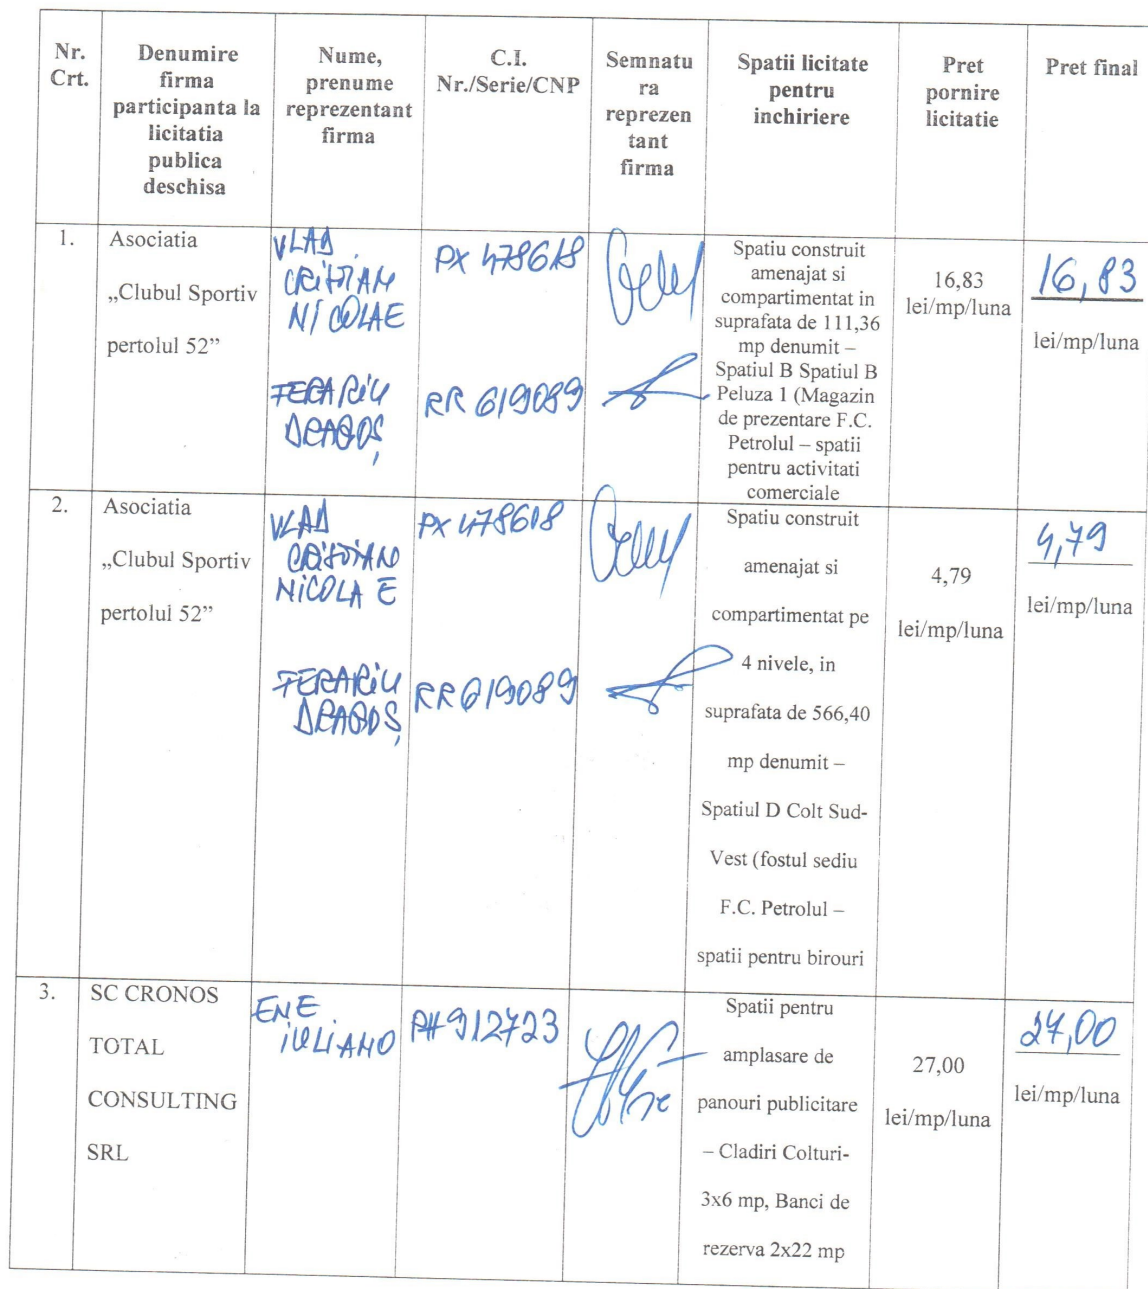 Nr. Crt.
Denumire firma participanta la licitatia publica deschisa
Nume, prenume reprezentant firma
C.I. Nr./Serie/CNP
Semnatu ra reprezen tant firma
Spatii licitate pentru inchiriere
Pret pornire licitatie
Pret final
1.
Asociatia
„Clubul Sportiv
pertolul 52”
VLAD
CRISTIAN
NICOLAE
FERARIU
DRAGOȘ
PX 478618
RR 619089
Spatiu construit
amenajat si
compartimentat in
suprafata de 111,36
mp denumit –
Spatiul B Spatiul B
Peluza 1 (Magazin
de prezentare F.C.
Petrolul – spatii
pentru activitati
comerciale
16,83
lei/mp/luna
16,83
lei/mp/luna
2.
Asociatia
„Clubul Sportiv
pertolul 52”
VLAD
CRISTIAN
NICOLAE
FERARIU
DRAGOȘ
PX 478618
RR 619089
Spatiu construit
amenajat si
compartimentat pe
4 nivele, in
suprafata de 566,40
mp denumit –
Spatiul D Colt Sud-
Vest (fostul sediu
F.C. Petrolul –
spatii pentru birouri
4,79
lei/mp/luna
4,79
lei/mp/luna
3.
SC CRONOS
TOTAL
CONSULTING
SRL
ENE
IULIANO
PH 912723
Spatii pentru
amplasare de
panouri publicitare
– Cladiri Colturi-
3x6 mp, Banci de
rezerva 2x22 mp
27,00
lei/mp/luna
27,00
lei/mp/luna